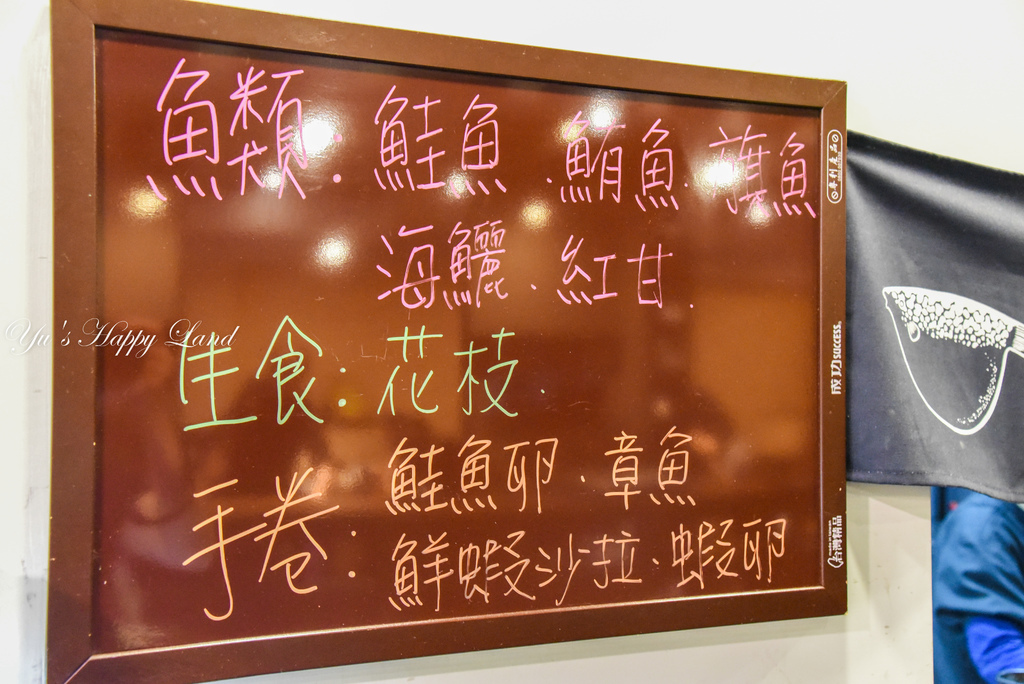 魚類：鮭魚．鮪魚．旗魚
海鱺．紅甘．
生食：花枝．
手卷：鮭魚卵．章魚
鮮蝦沙拉．蝦卵
Yu's Happy Land
專利產品
成功SUCCESS.
台灣精品